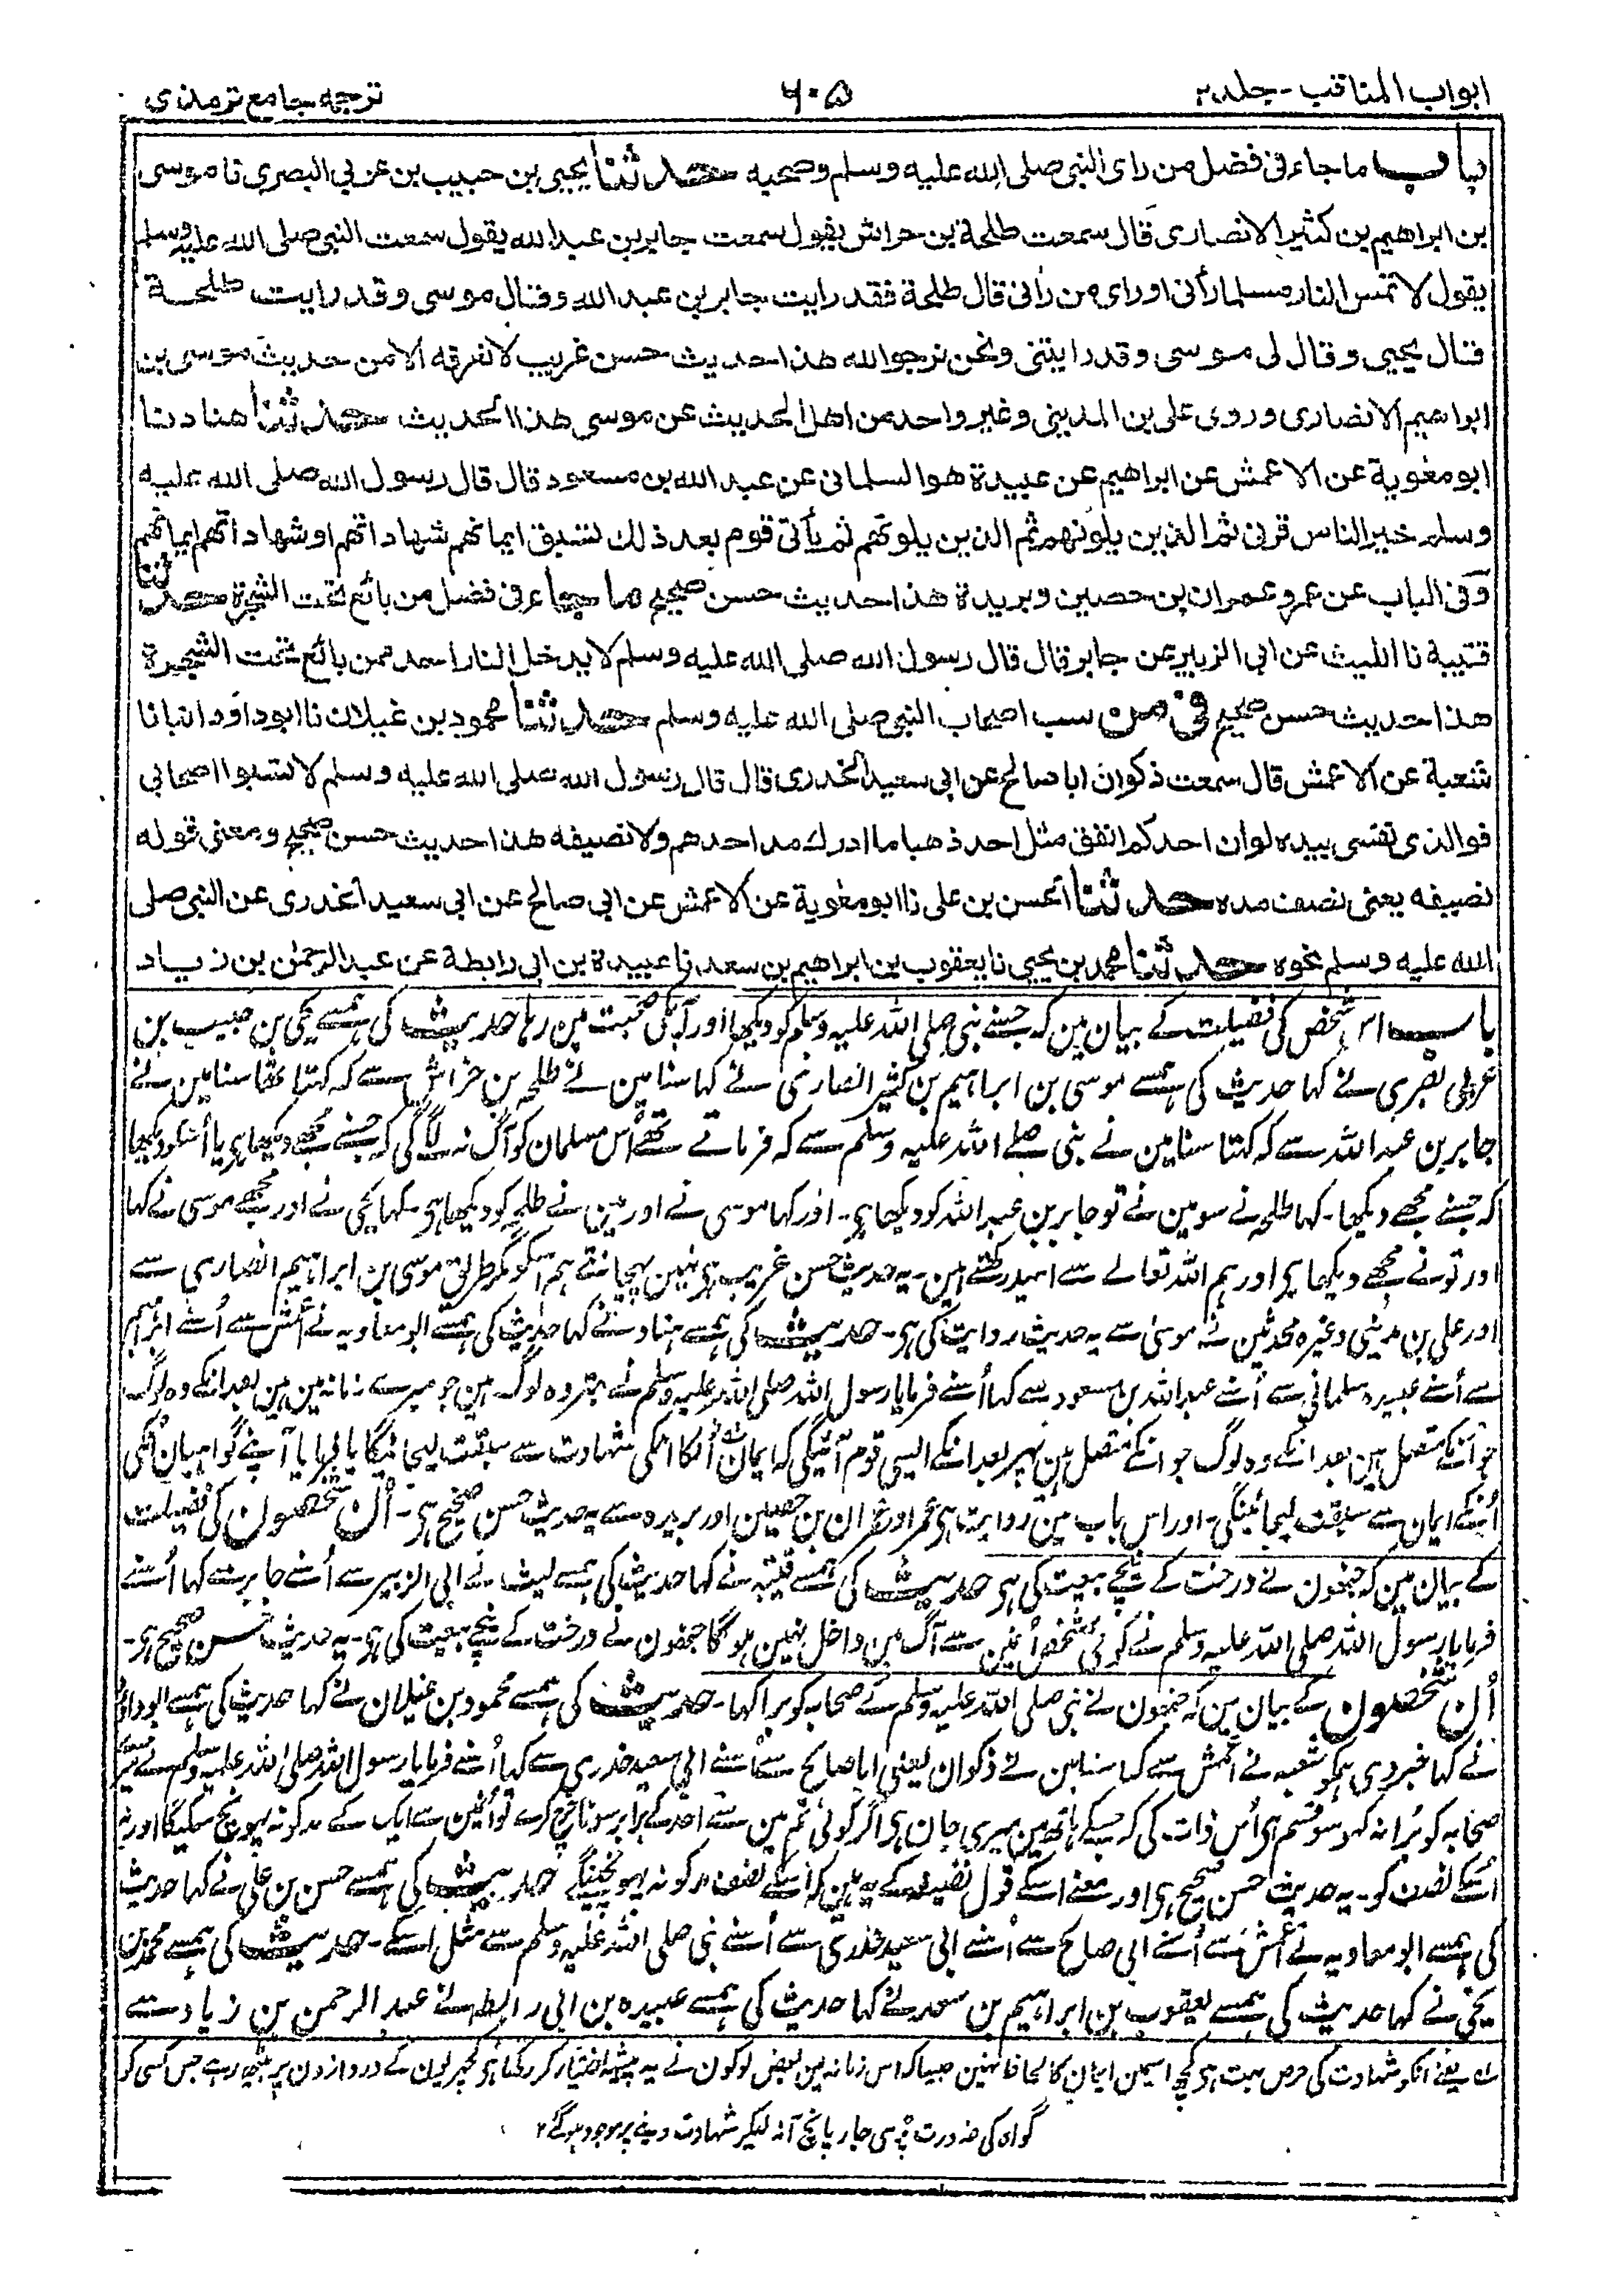 ابواب المناقب - جلد ٢
٦٠٥
ترجمه جامع ترمذى
باب ما جاء فى فضل من رأى النبى صلى الله عليه وسلم وصحبه حدثنا يحيى بن حبيب بن عربى البصرى نا موسى
بن ابراهيم بن كثير الانصارى قال سمعت طلحة بن خراش يقول سمعت جابر بن عبد الله يقول سمعت النبى صلى الله عليه وسلم
يقول لا تمس النار مسلما رأنى او راى من رأنى قال طلحة فقد رايت جابر بن عبد الله وقال موسى وقد رايت طلحة
قال يحيى وقال لى موسى وقد رايتنى ونحن نرجوا الله هذا حديث حسن غريب لا نعرفه الا من حديث موسى بن
ابراهيم الانصارى وروى على بن المدينى وغير واحد من اهل الحديث عن موسى هذا الحديث حدثنا هناد نا
ابو معوية عن الاعمش عن ابراهيم عن عبيدة هو السلمانى عن عبد الله بن مسعود قال قال رسول الله صلى الله عليه
وسلم خير الناس قرنى ثم الذين يلونهم ثم الذين يلونهم ثم يأتى قوم بعد ذلك تسبق ايمانهم شهاداتهم او شهاداتهم ايمانهم
وفى الباب عن عمر وعمران بن حصين وبريدة هذا حديث حسن صحيح ما جاء فى فضل من بائع تحت الشجرة حدثنا
قتيبة نا الليث عن ابى الزبير عن جابر قال قال رسول الله صلى الله عليه وسلم لا يدخل النار احد ممن بائع تحت الشجرة
هذا حديث حسن صحيح فى من سب اصحاب النبى صلى الله عليه وسلم حدثنا محمود بن غيلان نا ابو داود انبانا
شعبة عن الاعمش قال سمعت ذكوان ابا صالح عن ابى سعيد الخدرى قال قال رسول الله صلى الله عليه وسلم لا تسبوا اصحابى
فوالذى نفسى بيده لو ان احدكم انفق مثل احد ذهبا ما ادرك مد احدهم ولا نصيفه هذا حديث حسن صحيح ومعنى قوله
نصيفه يعنى نصف مده حدثنا الحسن بن على نا ابو معوية عن الاعمش عن ابى صالح عن ابى سعيد الخدرى عن النبى صلى
الله عليه وسلم نحوه حدثنا محمد بن يحيى نا يعقوب بن ابراهيم بن سعد نا عبيدة بن ابى رابطة عن عبد الرحمن بن زياد
باب اس شخص کی فضیلت کے بیان مین کہ جسنے نبی صلی اللہ علیہ وسلم کو دیکھا اور آپکی صحبت مین رہا حدیث کی ہمسے یحیی بن حبیب بن
عربی بصری نے کہا حدیث کی ہمسے موسی بن ابراہیم بن کثیر انصاری نے کہا سنا مین نے طلحہ بن خراش سے کہ کہتا تھا سنا مین نے
جابر بن عبد اللہ سے کہ کہتا سنا مین نے نبی صلے اللہ علیہ وسلم سے کہ فرماتے تھے اُس مسلمان کو آگ نہ لگے گی کہ جسنے مجھے دیکھا ہی یا اُسکو دیکھا
کہ جسنے مجھے دیکھا۔ کہا طلحہ نے سو مین نے تو جابر بن عبد اللہ کو دیکھا ہی۔ اور کہا موسی نے اور مین نے طلحہ کو دیکھا ہی۔ کہا یحیی نے اور مجھے موسی نے کہا
اور تو نے مجھے دیکھا ہی اور ہم اللہ تعالے سے امید رکھتے ہین۔ یہ حدیث حسن غریب ہی نہین پہچانتے ہم اسکو مگر طریق موسی بن ابراہیم انصاری سے
اور علی بن مدینی وغیرہ محدثین نے موسی سے یہ حدیث روایت کی ہی۔ حدیث کی ہمسے ہناد نے کہا حدیث کی ہمسے ابو معاویہ نے اعمش سے اُسنے ابراہیم
سے اُسنے عبیدہ سلمانی سے اُسنے عبد اللہ بن مسعود سے کہا اُسنے فرمایا رسول اللہ صلی اللہ علیہ وسلم نے بہتر وہ لوگ ہین جو میرے زمانہ مین ہین بعد انکے وہ لوگ
جو اُنکے متصل ہین بعد انکے وہ لوگ جو انکے متصل ہین پھر بعد انکے ایسی قوم آئیگی کہ ایمان اُنکا انکی شہادت سے سبقت لیجائیگا یا فرمایا آپنے گواہیان اُنکی
اُنکے ایمان سے سبقت لیجائینگی۔ اور اس باب مین روایت ہی عمر اور عمران بن حصین اور بریدہ سے یہ حدیث حسن صحیح ہی۔ اُن شخصون کی فضیلت
کے بیان مین کہ جنھون نے درخت کے نیچے بیعت کی ہی حدیث کی ہمسے قتیبہ نے کہا حدیث کی ہمسے لیث نے ابی الزبیر سے اُسنے جابر سے کہا اُسنے
فرمایا رسول اللہ صلی اللہ علیہ وسلم نے کوئی شخص اُنمین سے آگ مین داخل نہین ہوگا جنھون نے درخت کے نیچے بیعت کی ہی۔ یہ حدیث حسن صحیح ہی۔
اُن شخصون کے بیان مین کہ جنھون نے نبی صلی اللہ علیہ وسلم کے صحابہ کو برا کہا۔ حدیث کی ہمسے محمود بن غیلان نے کہا حدیث کی ہمسے ابو داؤد
نے کہا خبر دی ہمکو شعبہ نے اعمش سے کہا سنا مین نے ذکوان یعنی ابا صالح سے اُسنے ابی سعید خدری سے کہا اُسنے فرمایا رسول اللہ صلی اللہ علیہ وسلم نے میرے
صحابہ کو بُرا نہ کہو سو قسم ہی اُس ذات کی کہ جسکے ہاتھ مین میری جان ہی اگر کوئی تم مین سے احد کے برابر سونا خرچ کرے تو اُنمین سے ایک کے مد کو نہ پہونچ سکیگا اور نہ
اُسکے نصف کو۔ یہ حدیث حسن صحیح ہی اور معنے اسکے قول نصیفہ کے یہ ہین کہ اُسکے نصف مد کو نہ پہونچینگے حدیث کی ہمسے حسن بن علی نے کہا حدیث
کی ہمسے ابو معاویہ نے اعمش سے اُسنے ابی صالح سے اُسنے ابی سعید خدری سے اُسنے نبی صلی اللہ علیہ وسلم سے مثل اسکے۔ حدیث کی ہمسے محمد بن
یحیی نے کہا حدیث کی ہمسے یعقوب بن ابراہیم بن سعد نے کہا حدیث کی ہمسے عبیدہ بن ابی رابطہ نے عبد الرحمن بن زیاد سے
یعنے انکو شہادت کی حرص بہت ہی کچھ اسمین ایمان کا لحاظ نہین جیسا کہ اس زمانہ مین بعض لوگون نے یہ پیشہ اختیار کر رکھا ہی کچہریون کے دروازون پر بیٹھے رہے جس کسی کو
گواہ کی ضرورت پڑسی چار پانچ آنہ لیکر شہادت دینے پر موجود ہوگئے ۱۲